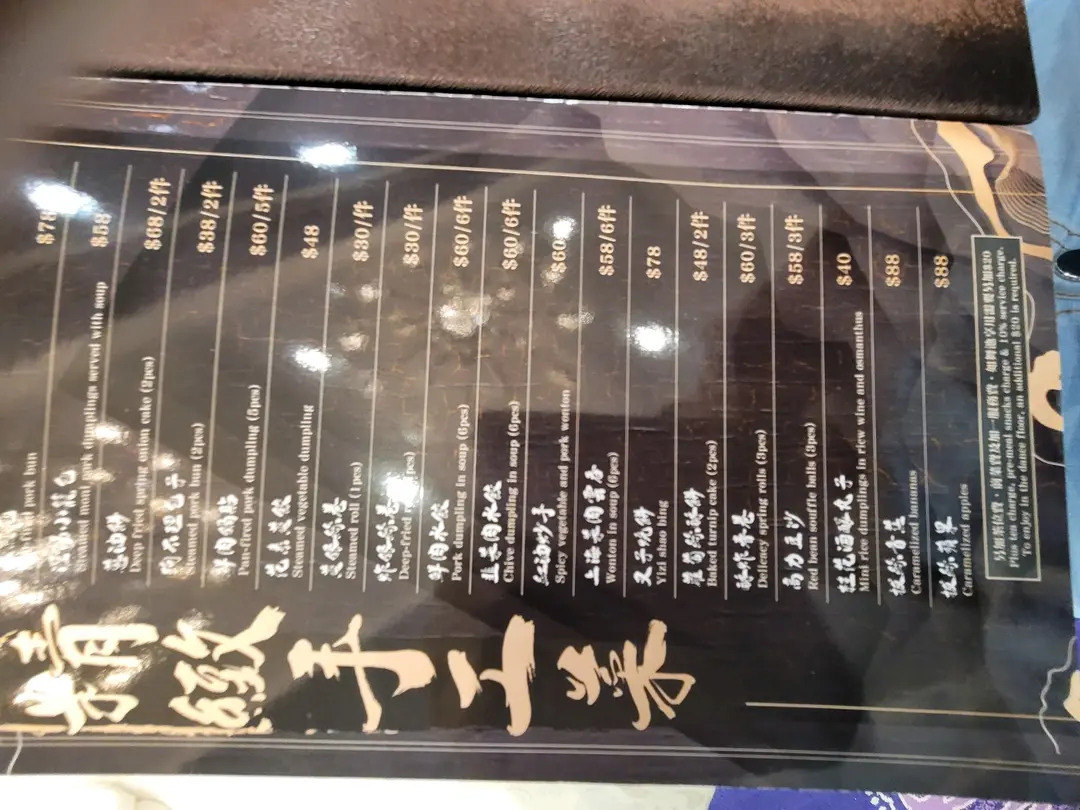 精緻手工菜
pork bun
$78
小籠包
Steamed pork dumplings served with soup
$58
蔥油餅
Deep-fried spring onion cake (2pcs)
$68/2件
狗不理包子
Steamed pork bun (2pcs)
$38/2件
鮮肉鍋貼
Pan-fried pork dumpling (5pcs)
$60/5件
花素蒸餃
Steamed vegetable dumpling
$48
蒸銀絲卷
Steamed roll (1pcs)
$30/件
炸銀絲卷
Deep-fried
$30/件
鮮肉水餃
Pork dumpling in soup (6pcs)
$60/6件
韭菜肉水餃
Chive dumpling in soup (6pcs)
$60/6件
紅油抄手
Spicy vegetable and pork wonton
$60
上海菜肉雲吞
Wonton in soup (6pcs)
$58/6件
叉子燒餅
Yizi shao bing
$78
蘿蔔絲酥餅
Baked turnip cake (2pcs)
$48/2件
酥炸春卷
Deliency spring rolls (3pcs)
$60/3件
高力豆沙
Red bean souffle balls (3pcs)
$58/3件
桂花酒釀丸子
Mini rice dumplings in ricew wine and osmanthus
$40
拔絲香蕉
Caramelized bananas
$88
拔絲蘋果
Caramelized apples
$88
另加茶位費，前菜費及加一服務費，如舞池享用需要另加$20
Plus tea charge, pre-meal snacks charge & 10% service charge.
To enjoy in the dance floor, an additional $20 is required.